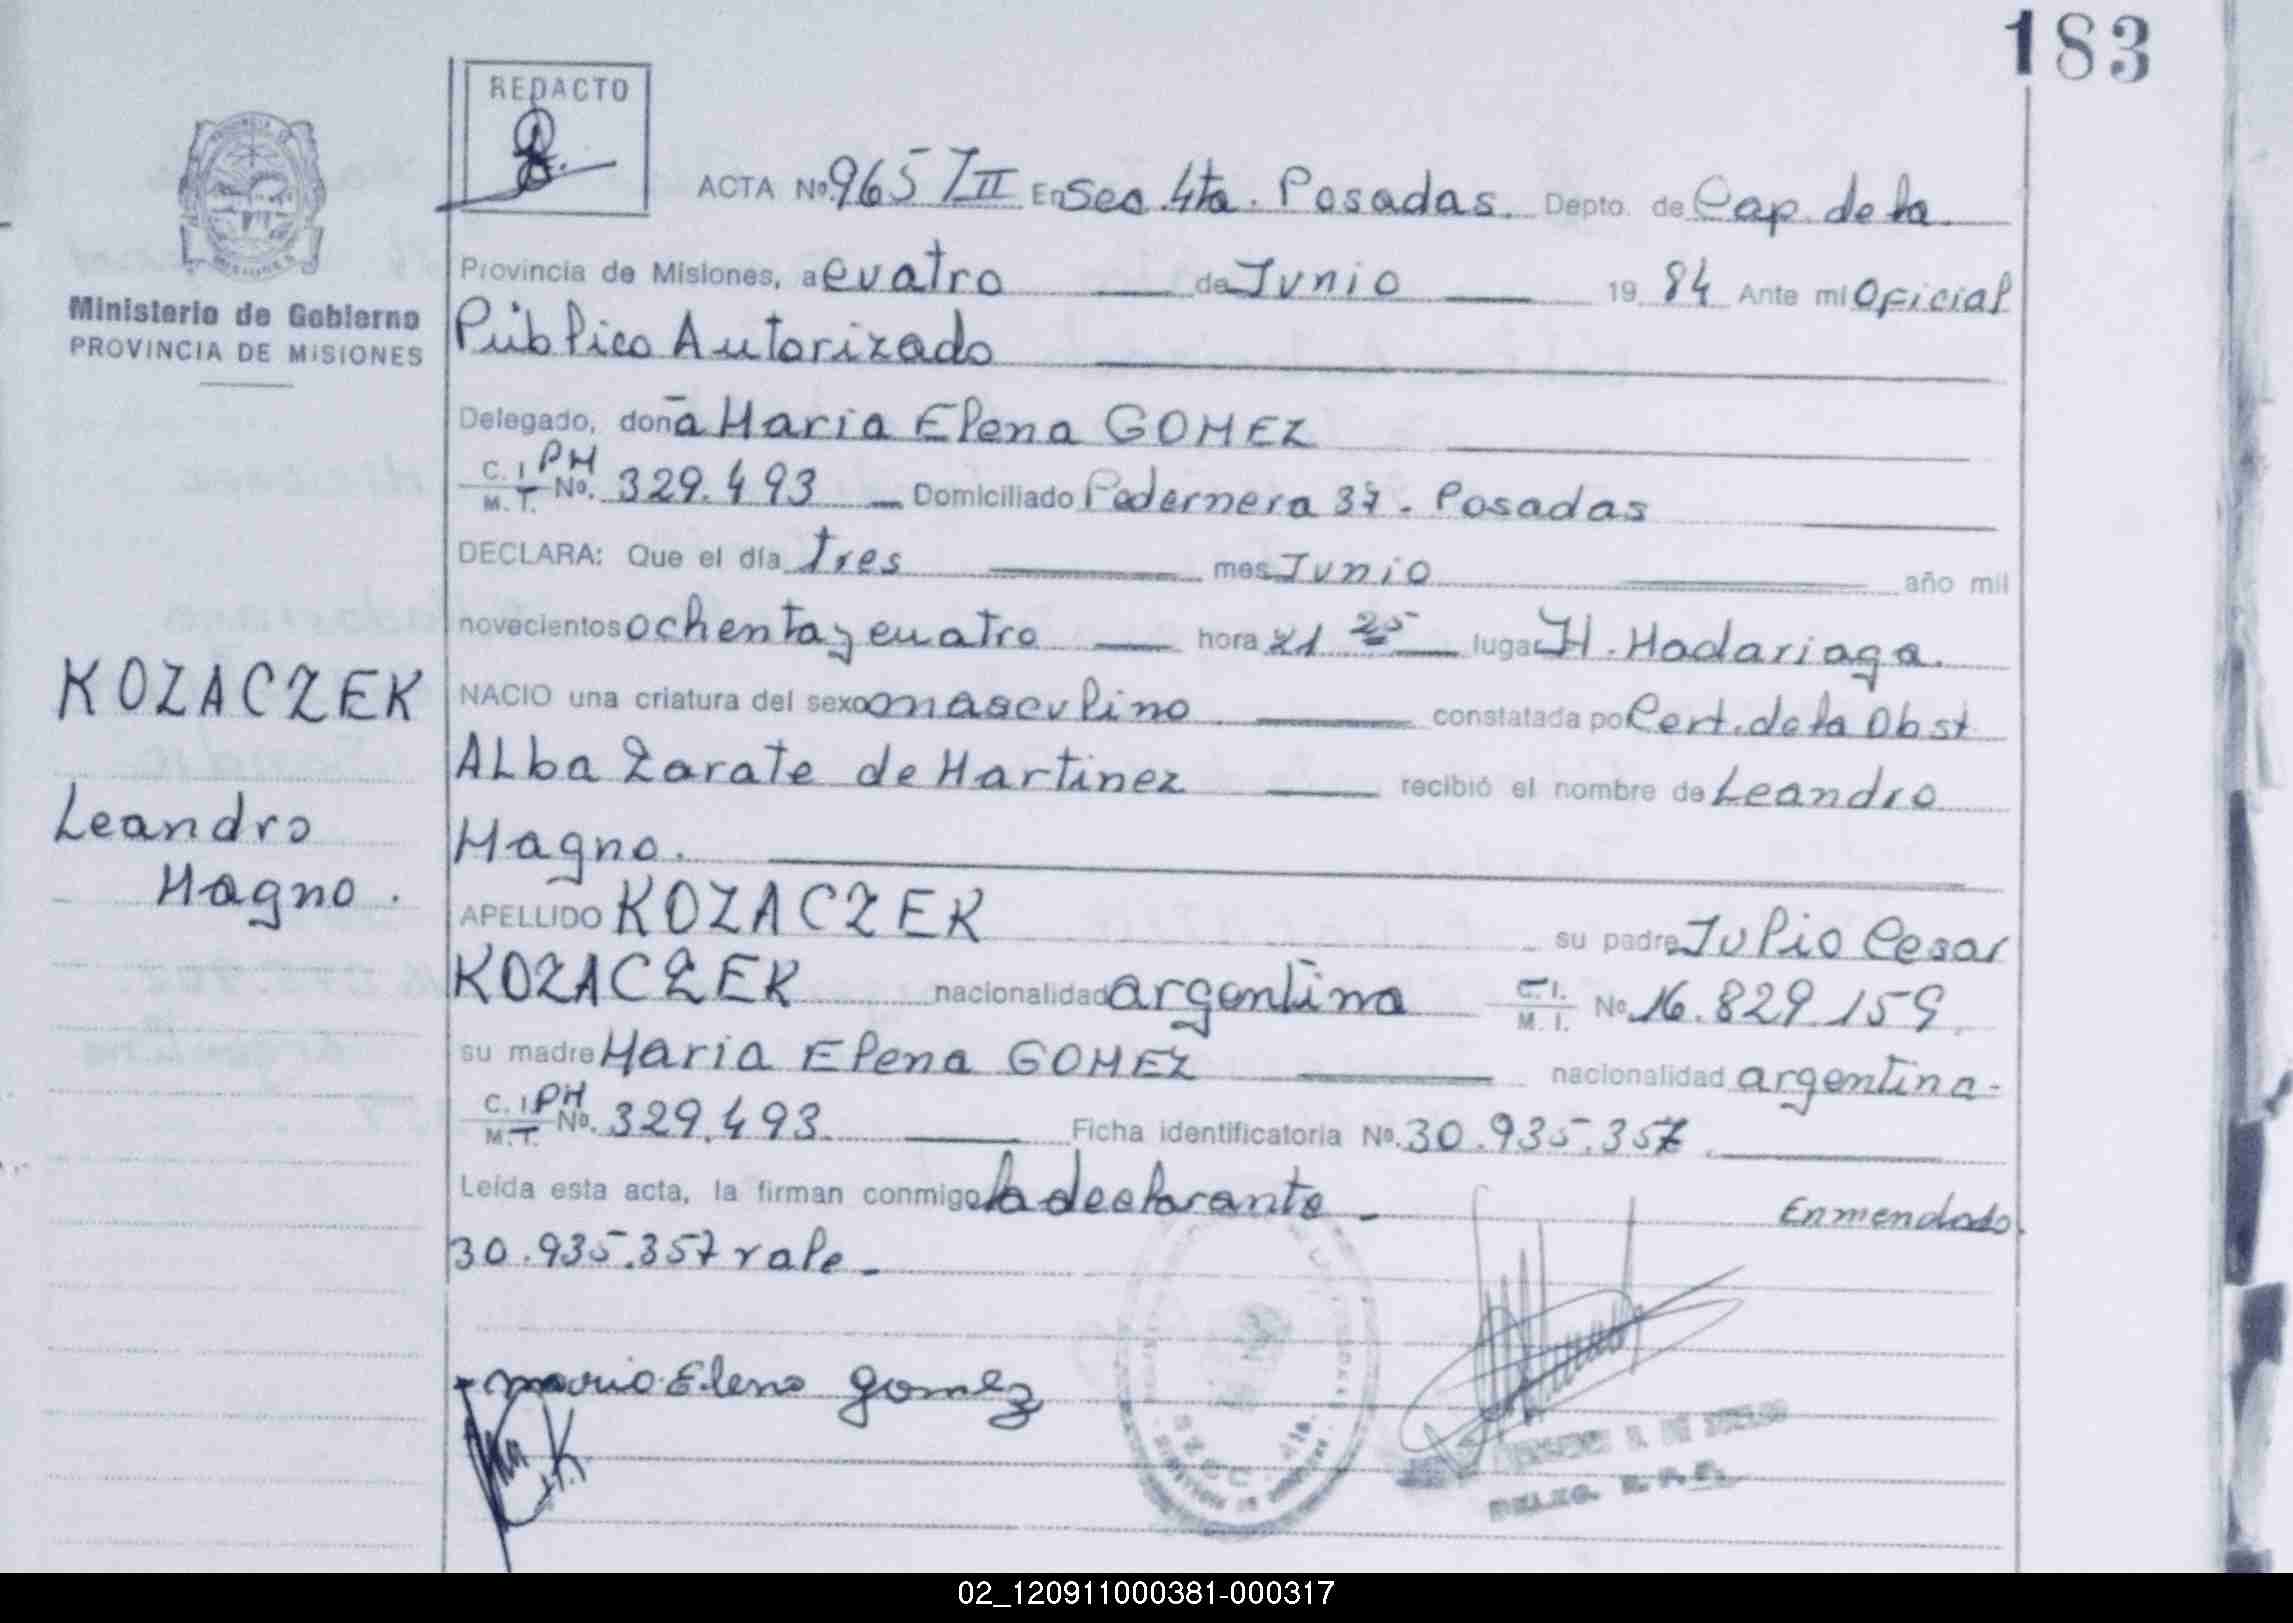 183
REDACTO
ACTA Nº 965 T II En Sec. 4ta. Posadas. Depto. de Cap. de la
Provincia de Misiones, a cuatro de Junio 19 84 Ante mi Oficial
Público Autorizado
Delegado, doña Maria Elena GOMEZ
C. I. PH
M. I. Nº. 329.493 Domiciliado Pedernera 37. Posadas
DECLARA: Que el día tres mes Junio año mil
novecientos ochenta y cuatro hora 21 25 lugar H. Madariaga.
NACIO una criatura del sexo masculino constatada por Cert. de la Obst
ALba Zarate de Martinez recibió el nombre de Leandro
Magno.
APELLIDO KOZACZEK su padre Julio Cesar
KOZACZEK nacionalidad argentina C.I. M. I. Nº 16.829.159
su madre Maria Elena GOMEZ nacionalidad argentina
C. I. PH
M. I. Nº. 329.493 Ficha identificatoria Nº. 30.935.357
Leída esta acta, la firman conmigo la declarante Enmendado.
30.935.357 vale
Maria Elena Gomez
DELEG.
Ministerio de Gobierno
PROVINCIA DE MISIONES
KOZACZEK
Leandro
Magno.
02_120911000381-000317